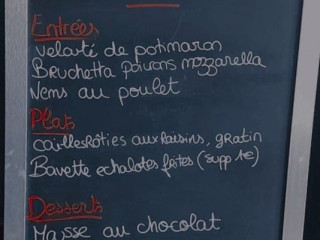 Entrées
velouté de potimaron
Bruchetta poivrons mozzarella
Nems au poulet
Plats
cailles Rôties aux Raisins, gratin
Bavette echalotes frites (supp 1€)
Desserts
Mousse au chocolat